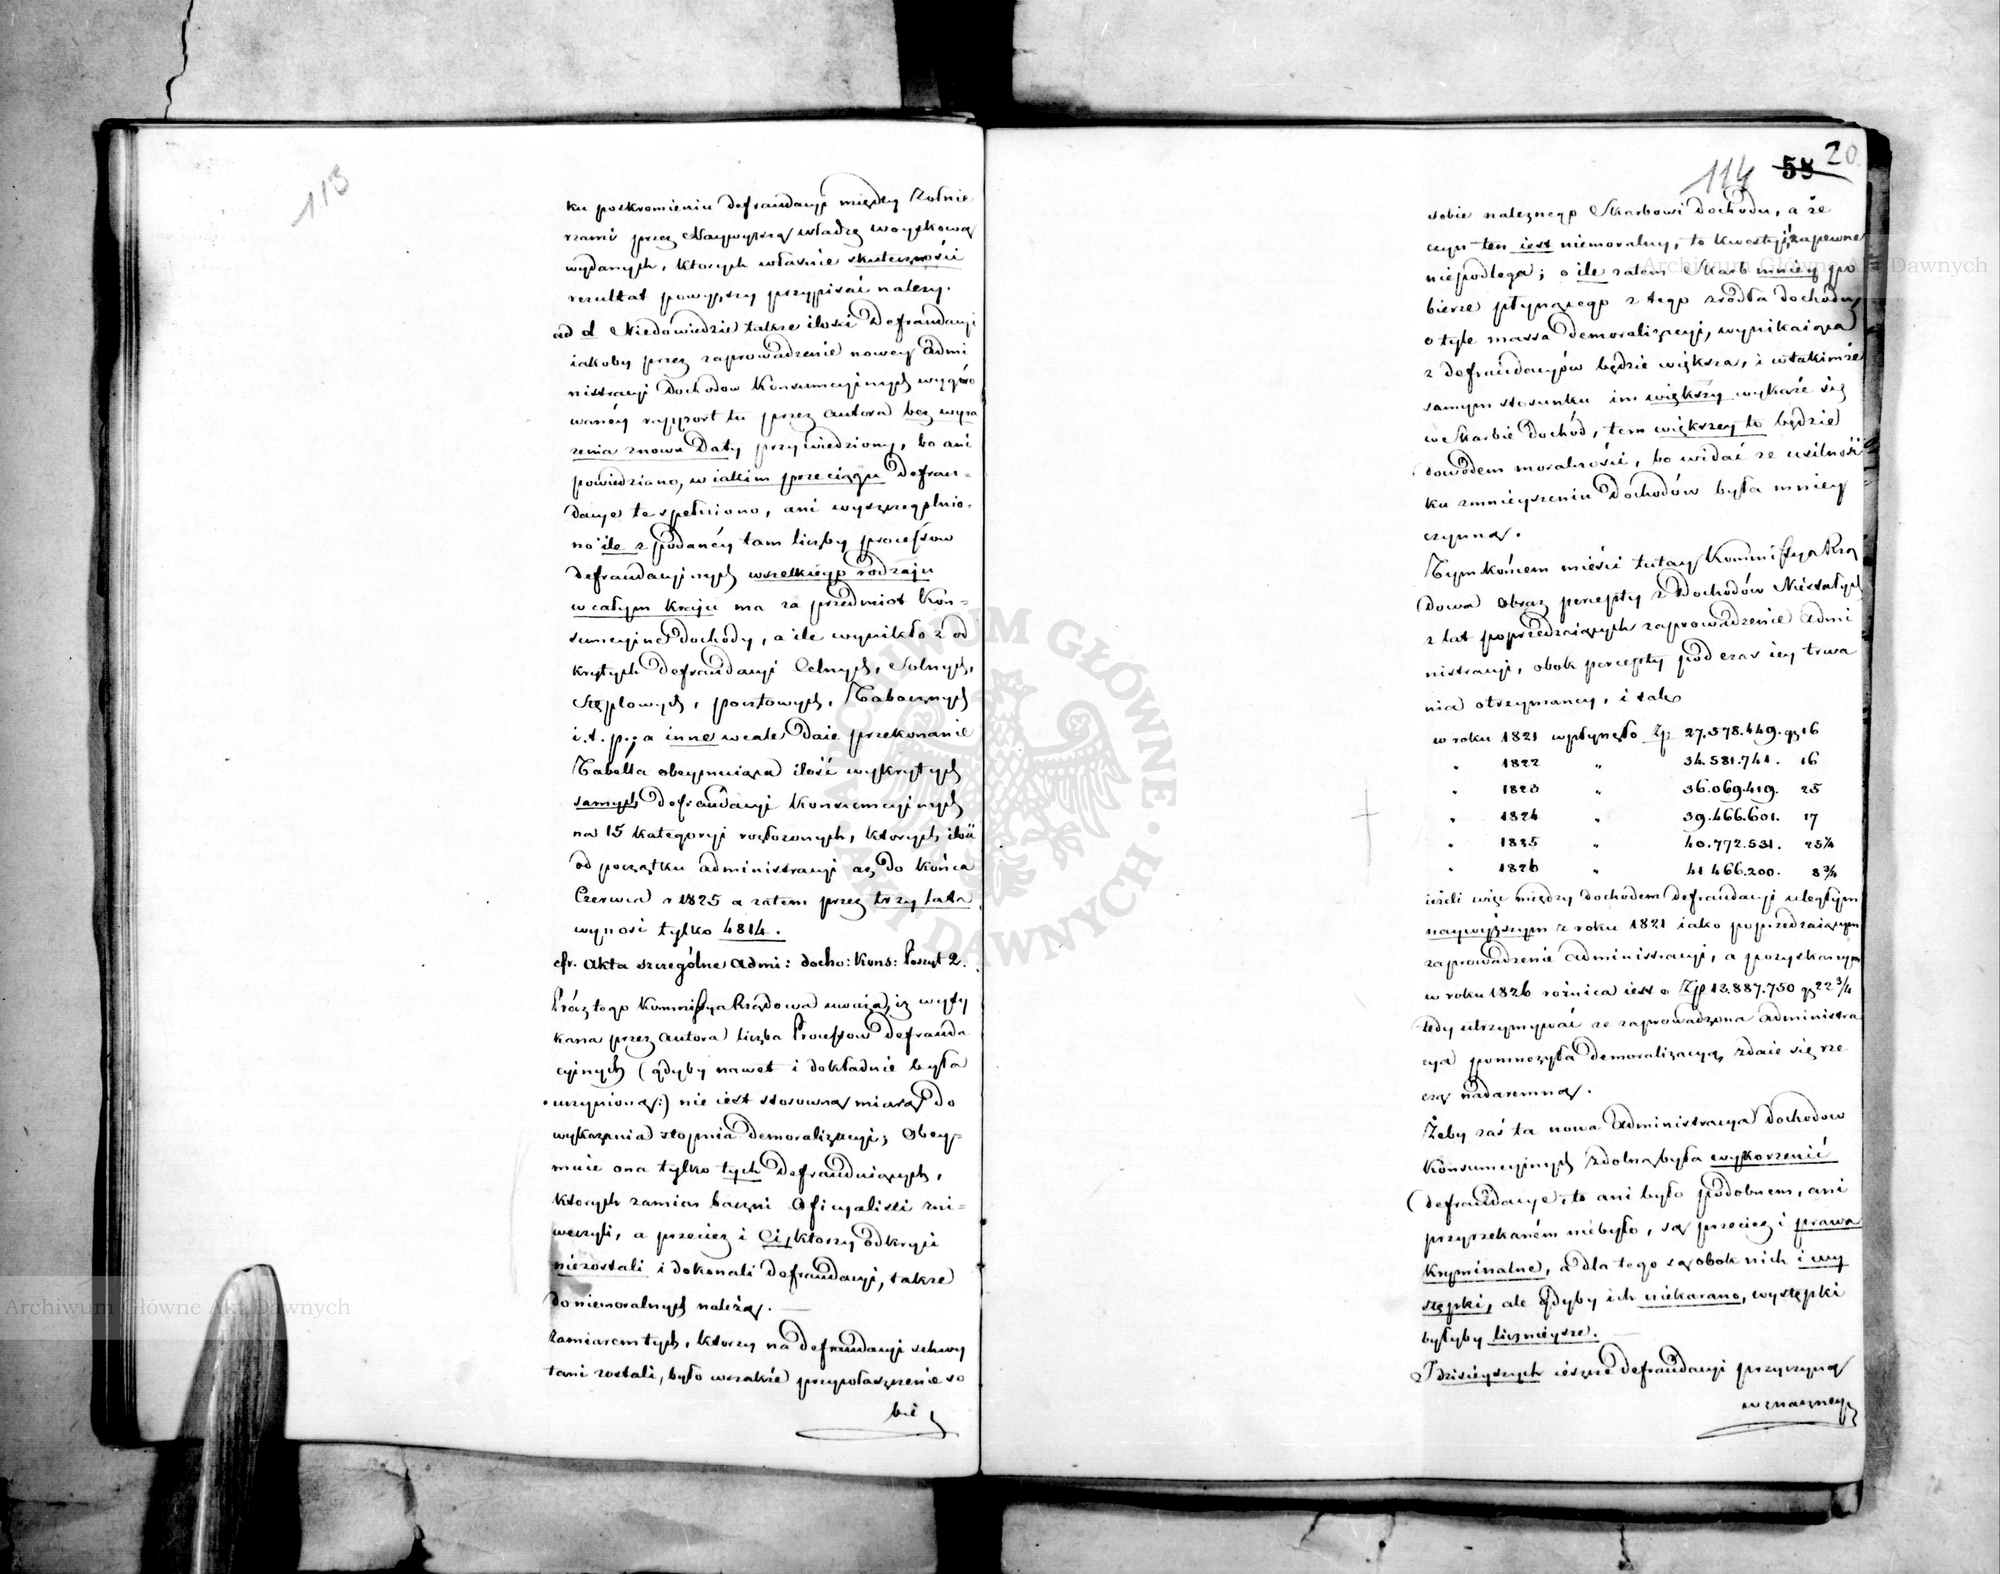 113
ku poskromieniu defraudacyi między Żołnie
rzami przez Naywyższą władzę woyskową
wydanych, których własnie skuteczności
rezultat powyższy przypisać należy.
ad d Niedowiedzie także ilości Defraudacyi
iakoby przez zaprowadzenie nowey Admi
nistracyi Dochodow Konsumcyinych wygóro
waney rapport tu przez autora bez wyra
żenia znowu Daty przywiedziony, bo ani
powiedziano, w iakim przeciągu Defrau-
dacye te spełniono, ani wyszczególnio-
no ile z podanéy tam liczby processow
defraudacyinych wszelkiego rodzaju
w całym kraju ma za przedmiot Kon-
sumcyine dochody, a ile wynikło z od
krytych Defraudacyi Celnych, Solnych,
Stęplowych, pocztowych, Tabacznych
i. t. p.; a inne wcale Daie przekonanie
Tabella obeymuiąca ilość wykrytych
samych Defraudacyi Konsumcyinych
na 15 kategoryi rozłożonych, których ilość
od początku administracyi aż do końca
Czerwca r 1825 a zatem przez trzy lata
wynosi tylko 4814.
cfr. Akta szczególne Admi: docho: Kons: Poszyt 2.
Prócz tego Kommissya Rządowa uważa, iż wyty
kana przez autora liczba Processow Defrauda
cyinych (gdyby nawet i dokładnie była
uczyniona:) nie iest stosowną miarą do
wykazania stopnia demoralizacyi; Obey-
muie ona tylko tych Defrauduiących,
których zamiar baczni Oficyaliści zni-
weczyli, a przeciez i Ci, którzy odkryci
niezostali i dokonali defraudacyi, także
do niemoralnych należą.
Zamiarem tych, którzy na defraudacyi schwy
tani zostali, było wszakże przywłaszczenie so
bie
114 58 20.
sobie należnego Skarbowi dochodu, a że
czyn ten iest niemoralny, to kwestyi zapewne
niepodlega; o ile zatem Skarb mniey po
bierze płynącego z tego źrodła dochodu,
o tyle massa demoralizacyi, wynikaiąca
z defraudacyów będzie większa, i w takimże
samym stosunku im większy wykaże się
w Skarbie Dochód, tem większey to będzie
dowodem moralności, bo widać że usilność
ku zmnieyszeniu Dochodów była mniey
czynną.
Tym końcem mieści tutay Kommissya Rzą
dowa obraz percepty z Dochodów Niestałych
z lat poprzedzaiących zaprowadzenie admi
nistracyi, obok percepty pod czas iey trwa
nia otrzymaney, i tak
w roku 1821 wpłynęło Zp 27.578.449. gr 16
" 1822 " 34.581.741. 16
" 1823 " 36.069.419. 25
" 1824 " 39.466.601. 17
" 1825 " 40.772.531. 25¼
" 1826 " 41 466.200. 8¾
ieżeli więc między dochodem defraudacyi uległym
naywyższym z roku 1821 iako poprzedzaiącym
zaprowadzenie administracyi, a pozyskanym
w roku 1826 rożnica iest o Zp 13.887.750 gr 22¾
tedy utrzymywać że zaprowadzona administra
cya pomnożyła demoralizacyą, zdaie się rze
czą nadaremną.
Żeby zaś ta nowa Administracya dochodow
Konsumcyinych zdolną była wykorzenić
defraudacye, to ani było podobnem, ani
przyrzekaném niebyło, są przeciez i prawa
kryminalne, a dla tego są obok nich i wy
stępki, ale gdyby ich niekarano, występki
byłyby licznieysze.
I dzisieyszych ieszcze defraudacyi przyczyną
w znaczney
Archiwum Główne Akt Dawnych
Archiwum Główne Akt Dawnych
ARCHIWUM GŁÓWNE AKT DAWNYCH